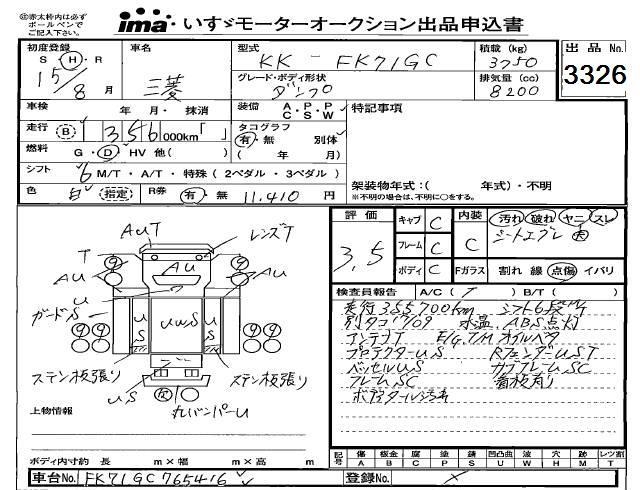 ㊟赤太枠内は必ず
ボールペンで
ご記入下さい。
ima いすゞモーターオークション出品申込書
初度登録 車名 型式 積載 (kg) 出品 No.
S・H・R 三菱 KK-FK71GC 3750 3326
15/8月 グレード・ボディ形状 排気量 (cc)
ダンプ 8200
車検 年 月・抹消 装備 A・P・P 特記事項
C・S・W
走行 B 356000km「 」 タコグラフ
有・無 別体
燃料 G・D・HV 他( ) ( 年 月)
シフト 6 M/T・A/T・特殊 ( 2ペダル・3ペダル )
架装物年式:( 年式)・不明
色 白 指定 R券 有・無 11,410円
※不明の場合は、不明に○をする。
評価 キャブ C 内装 汚れ 破れ ヤニ スレ
3.5 フレーム C C シートエグレ 大
ボディ C Fガラス 割れ 線 点傷 イバリ
AUT レンズT
T AU AU
AU
U
ガードS
US UWS US
ステン板張り ステン板張り
US
九バンパーU
検査員報告 A/C ( ) B/T ( )
走行355700km シフト6段M/T
別タコ1709 水温、ABS点灯
アンテナT E/G,T/Mオイルベタ
プロテクターUS RフェンダーUST
ベッセルUS サブフレームSC
フレームSC 看板有り
ボデスタール汚れ
上物情報
ボディ内寸約 長 m×幅 m×高 m
記号 傷 板金 腐 塗 錆 凹凸曲 波 穴 跡 レツ割
A B C P S U W H M T
車台No. FK71GC765416 登録No.